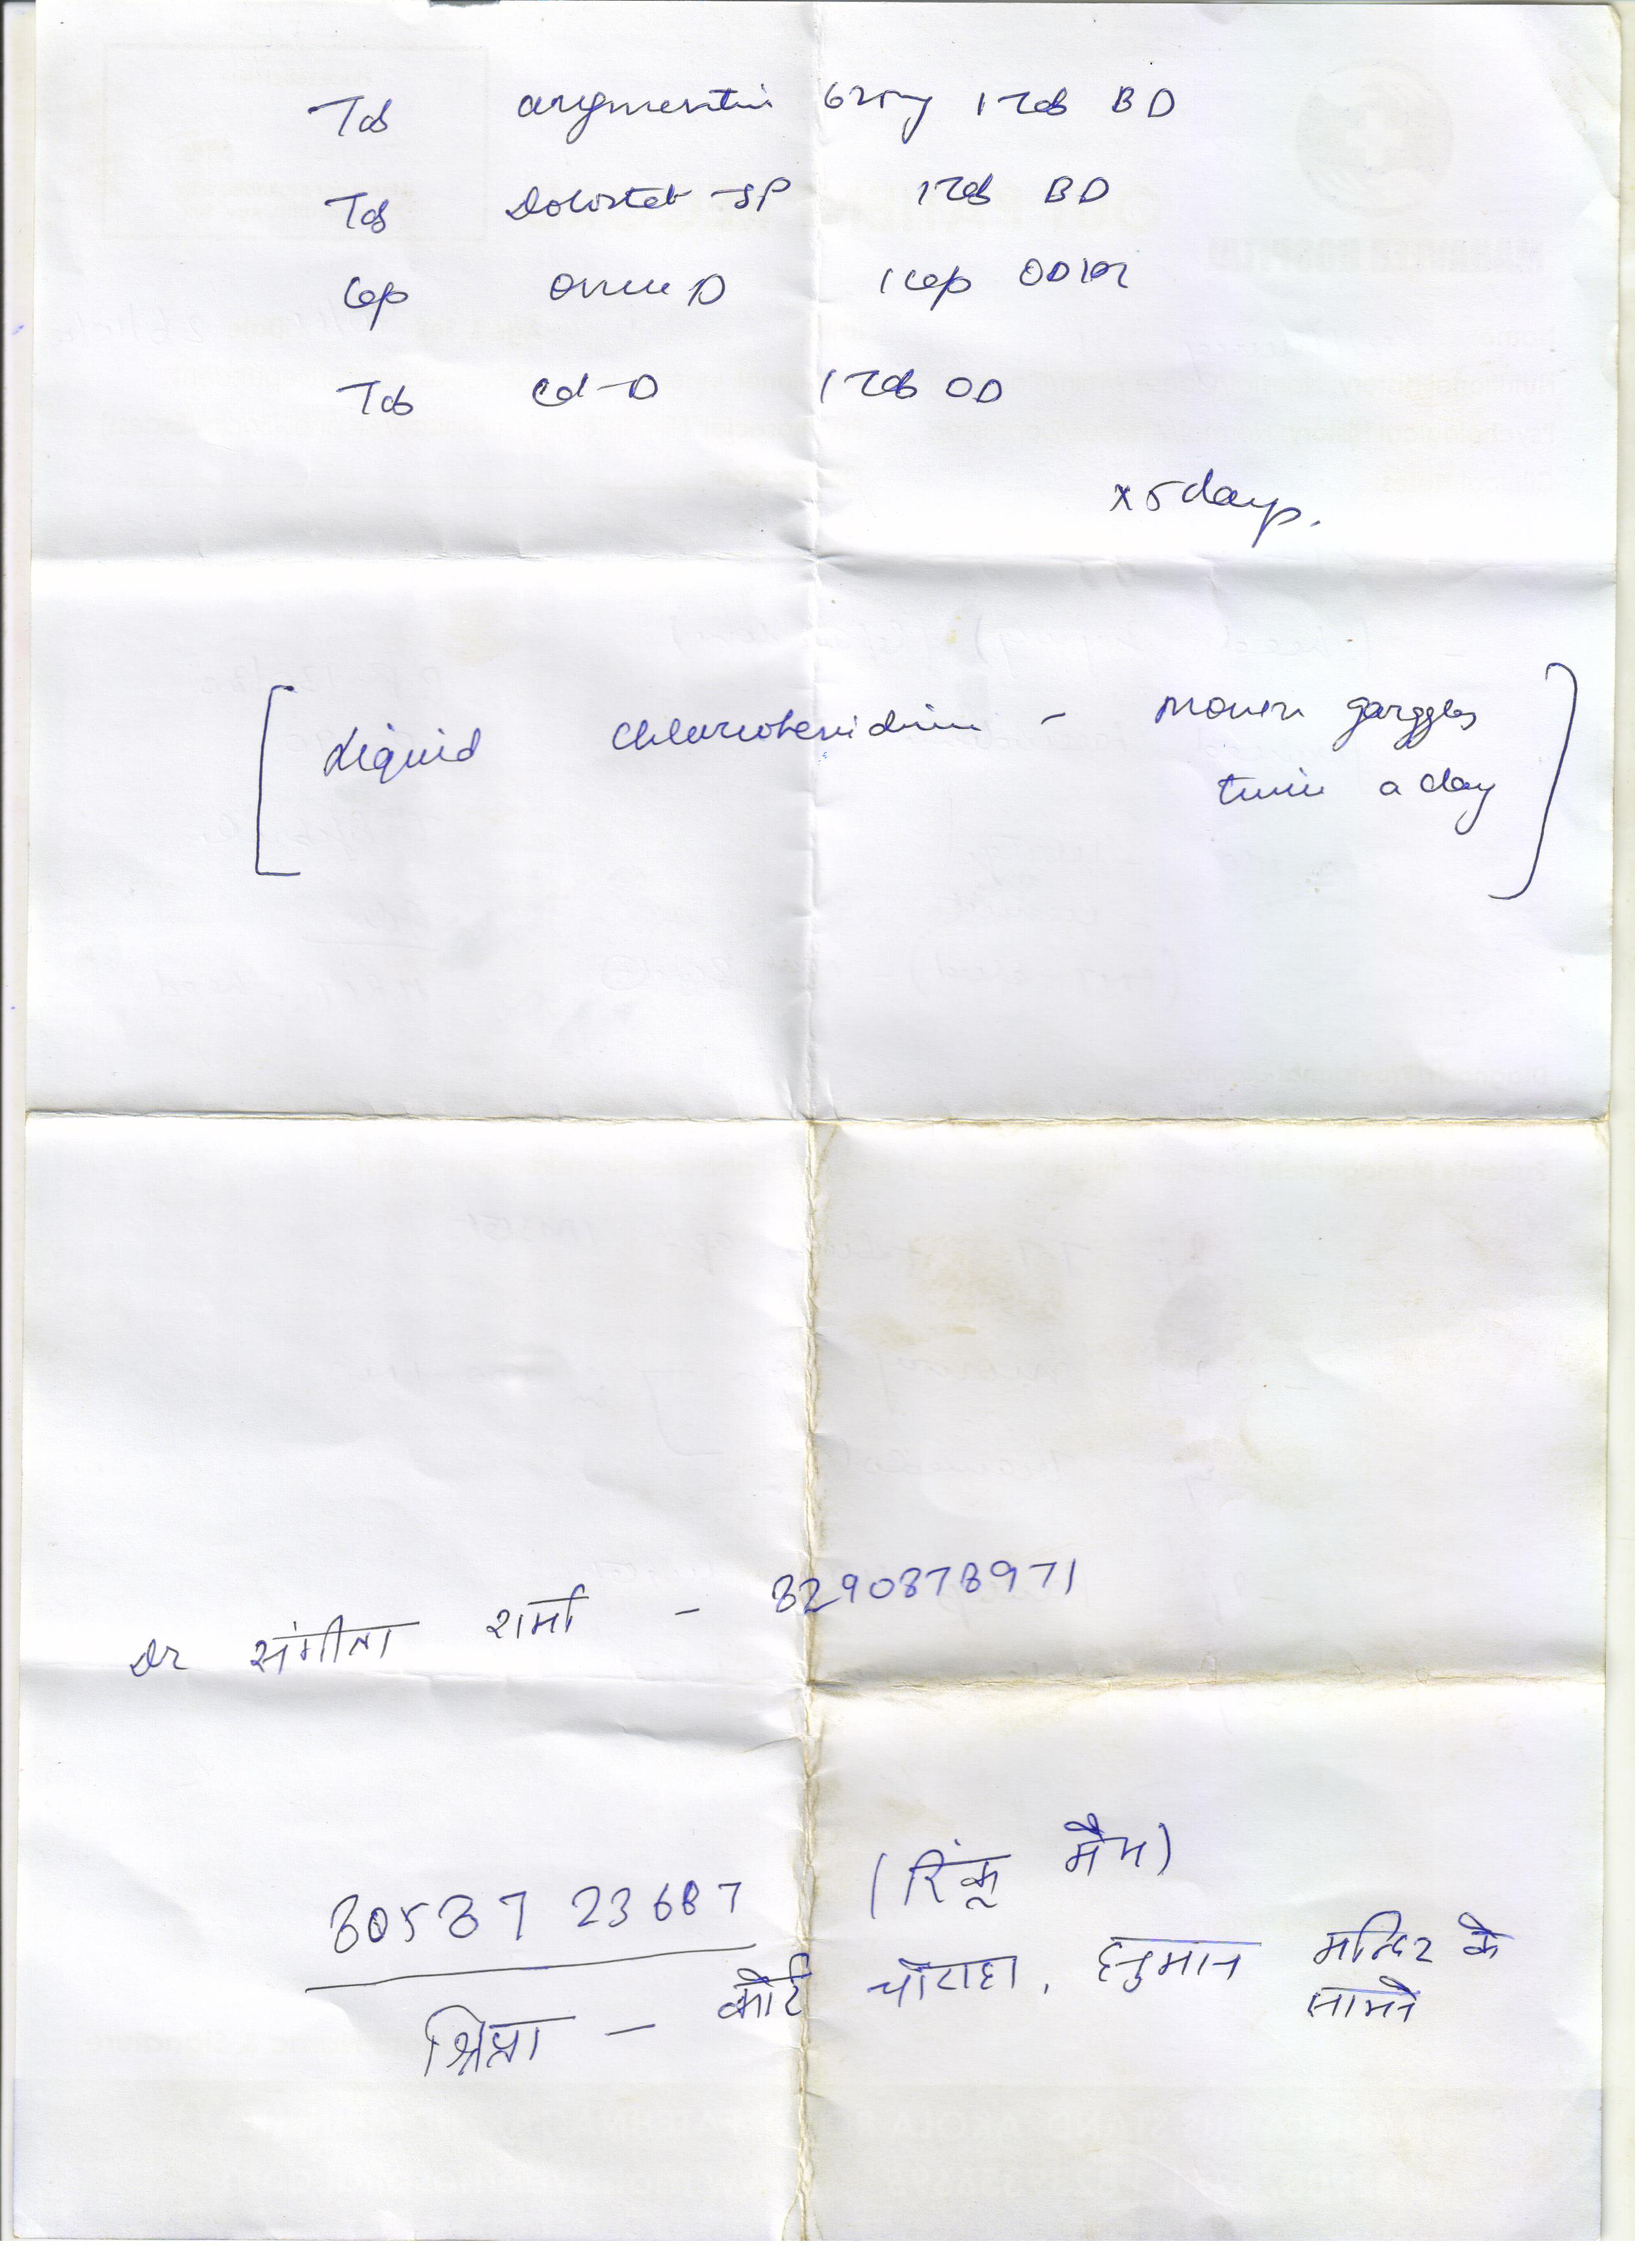 Tab augmentin 625mg 1 Tab BD
Tab Dolostat-SP 1 Tab BD
Cap Omee D 1 Cap OD
Tab Cd-D 1 Tab OD
x 5 days.
Liquid - mouth garggles
twice a day
Dr संगीता शर्मा - 8290878971
(रिंकू मैम)
80587 23687
कोर्ट चौराहा, हनुमान मन्दिर के
सामने